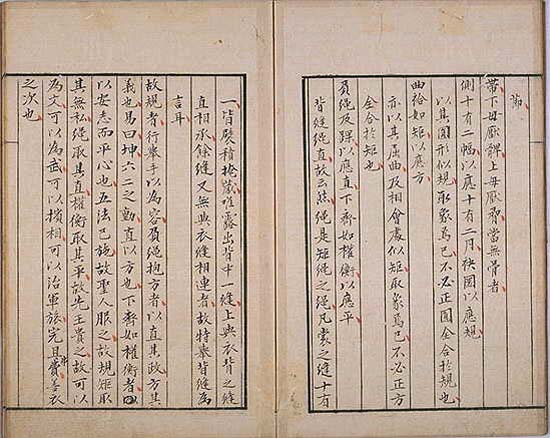 節
帶下毋厭髀上毋厭脅當無骨者
制十有二幅以應十有二月袂圜以應規
以其圜形似規取象焉已不必正圜全合於規也
曲袷如矩以應方
亦以其屈曲及相會處似矩取象焉已不必正方
全合於矩也
負繩及踝以應直下齊如權衡以應平
背縫繩直故云然繩是矩繩之繩凡裳之縫十有
一皆襞積掩藏唯露出背中一縫上與衣背之縫
直相承餘縫又無與衣縫相連者故特舉背縫為
言耳
故規者行舉手以為容負繩抱方者以直其政方其
義也易曰坤六二之動直以方也下齊如權衡者
以安志而平心也五法已施故聖人服之故規矩取
其無私繩取其直權衡取其平故先王貴之故可以
為文可以為武可以擯相可以治軍旅完且弗費善衣
之次也